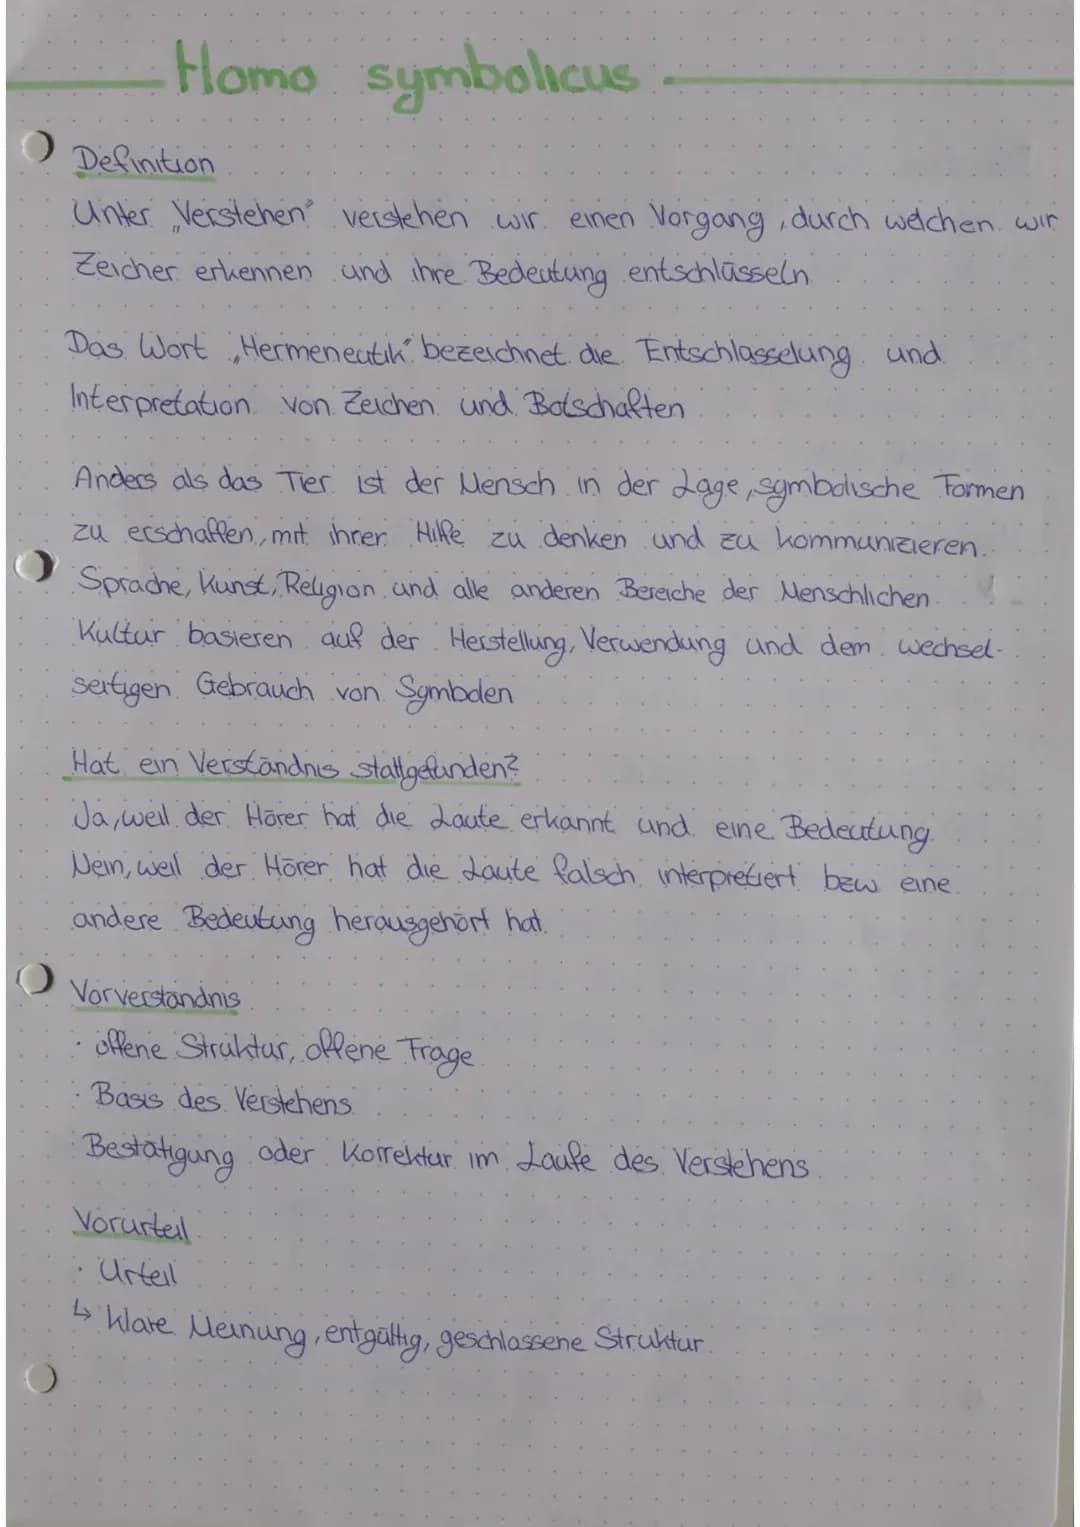 Homo symbolicus
Definition
Unter „Verstehen" verstehen wir einen Vorgang, durch welchen wir
Zeichen erkennen und ihre Bedeutung entschlüsseln
Das Wort „Hermeneutik" bezeichnet die Entschlasselung und
Interpretation von Zeichen und Botschaften
Anders als das Tier ist der Mensch in der Lage, symbolische Formen
zu erschaffen, mit ihrer Hilfe zu denken und zu kommunizieren.
Sprache, Kunst, Religion und alle anderen Bereiche der Menschlichen
Kultur basieren auf der Herstellung, Verwendung und dem wechsel-
seitigen Gebrauch von Symbolen
Hat ein Verständnis stattgefunden?
Ja, weil der Hörer hat die Laute erkannt und eine Bedeutung.
Nein, weil der Hörer hat die Laute falsch interpretiert bzw eine
andere Bedeutung herausgehört hat.
Vorverständnis
· offene Struktur, offene Frage
· Basis des Verstehens
· Bestätigung oder Korrektur im Laufe des Verstehens
Vorurteil
· Urteil
↳ klare Meinung, entgültig, geschlossene Struktur